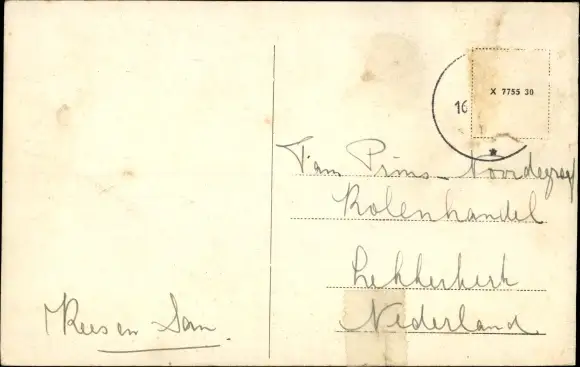 X 7755 30
16
Fam Prins-Noordegraaf
Kolenhandel
Lekkerkerk
Nederland
Kees en San